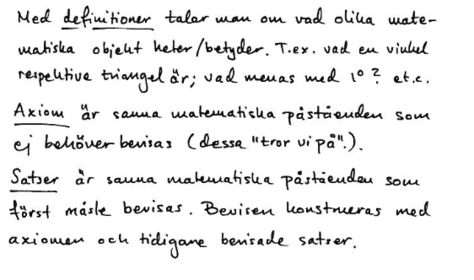 Med definitioner talar man om vad olika mate-
matiska objekt heter/betyder. T.ex. vad en vinkel
respektive triangel är; vad menas med 1°? etc.
Axiom är sanna matematiska påståenden som
ej behöver bevisas (dessa "tror vi på".).
Satser är sanna matematiska påståenden som
först måste bevisas. Bevisen konstrueras med
axiomen och tidigare bevisade satser.